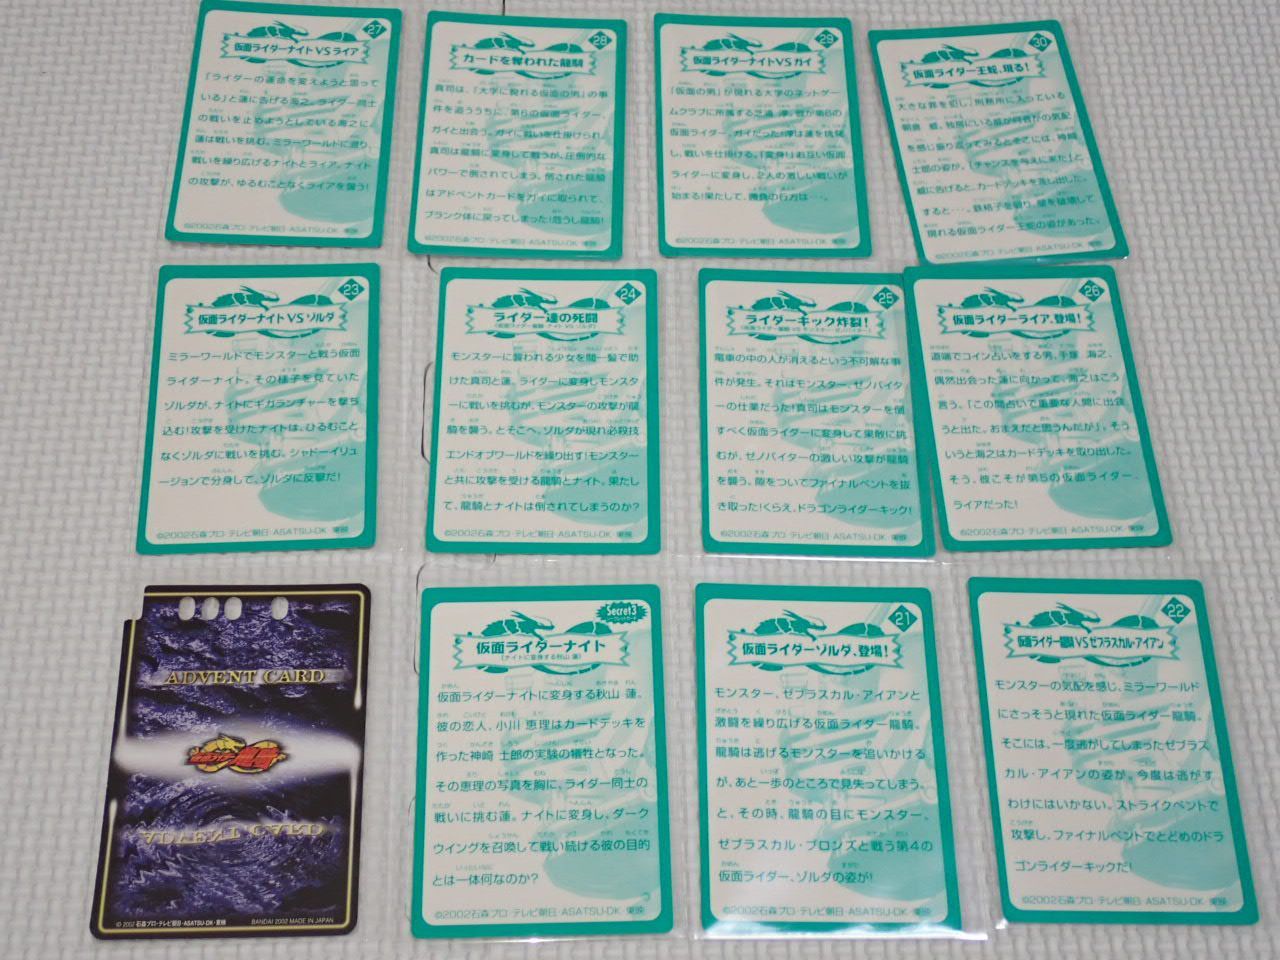 27
仮面ライダーナイト VS ライア
「ライダーの運命を変えようと思って
いる」と蓮に告げる海之。ライダー同士
の戦いを止めようとしている海之に、
蓮は戦いを挑む。ミラーワールドに渡り、
戦いを繰り広げるナイトとライア。ナイト
の攻撃が、ゆるむことなくライアを襲う!
©2002石森プロ・テレビ朝日・ASATSU-DK 東映
28
カードを奪われた龍騎
真司は、「大学に現れる仮面の男」の事
件を追ううちに、第6の仮面ライダー、
ガイと出会う。ガイに戦いを仕掛けられ、
真司は龍騎に変身して戦うが、圧倒的な
パワーで倒されてしまう。倒された龍騎
はアドベントカードをガイに取られて、
ブランク体に戻ってしまった!危うし龍騎!
©2002石森プロ・テレビ朝日・ASATSU-DK 東映
29
仮面ライダーナイトVSガイ
「仮面の男」が現れる大学のネットゲー
ムクラブに所属する芝浦 淳。彼が第6の
仮面ライダー、ガイだった!淳は蓮を挑発
し、戦いを仕掛ける。「変身!」お互い仮面
ライダーに変身し、2人の激しい戦いが
始まる!果たして、勝負の行方は…。
©2002石森プロ・テレビ朝日・ASATSU-DK 東映
30
仮面ライダー王蛇、現る!
大きな罪を犯し、刑務所に入っている
朝倉 威。独房にいる威が何者かの気配
を感じ振り返ってみるとそこには、神崎
士郎の姿が。「チャンスを与えに来た」と
威に告げると、カードデッキを差し出した。
すると…。鉄格子を破り、壁を破壊して
現れる仮面ライダー王蛇の姿があった。
©2002石森プロ・テレビ朝日・ASATSU-DK 東映
23
仮面ライダーナイト VS ゾルダ
ミラーワールドでモンスターと戦う仮面
ライダーナイト。その様子を見ていた
ゾルダが、ナイトにギガランチャーを撃ち
込む!攻撃を受けたナイトは、ひるむこと
なくゾルダに戦いを挑む。シャドーイリュ
ージョンで分身して、ゾルダに反撃だ!
©2002石森プロ・テレビ朝日・ASATSU-DK 東映
24
ライダー達の死闘
(仮面ライダー龍騎・ナイト VS ゾルダ)
モンスターに襲われる少女を間一髪で助
けた真司と蓮。ライダーに変身しモンスタ
ーに戦いを挑むが、モンスターの攻撃が龍
騎を襲う。とそこへ、ゾルダが現れ必殺技
エンドオブワールドを繰り出す!モンスター
と共に攻撃を受ける龍騎とナイト。果たし
て、龍騎とナイトは倒されてしまうのか?
©2002石森プロ・テレビ朝日・ASATSU-DK 東映
25
ライダーキック炸裂!
電車の中の人が消えるという不可解な事
件が発生。それはモンスター、ゼノバイタ
ーの仕業だった!真司はモンスターを倒
すべく仮面ライダーに変身して果敢に挑
むが、ゼノバイターの激しい攻撃が龍騎
を襲う。隙をついてファイナルベントを抜
き取った!くらえ、ドラゴンライダーキック!
©2002石森プロ・テレビ朝日・ASATSU-DK 東映
26
仮面ライダーライア、登場!
道端でコイン占いをする男、手塚 海之。
偶然出会った蓮に向かって、海之はこう
言う。「この間占いで重要な人間に出会
うと出た。おまえだと思うんだが」。そう
いうと海之はカードデッキを取り出した。
そう、彼こそが第5の仮面ライダー、
ライアだった!
©2002石森プロ・テレビ朝日・ASATSU-DK 東映
ADVENT CARD
仮面ライダー龍騎
ADVENT CARD
© 2002 石森プロ・テレビ朝日・ASATSU-DK・東映
BANDAI 2002 MADE IN JAPAN
Secret3
仮面ライダーナイト
(ナイトに変身する秋山 蓮)
仮面ライダーナイトに変身する秋山 蓮。
彼の恋人、小川 恵理はカードデッキを
作った神崎 士郎の実験の犠牲となった。
その恵理の写真を胸に、ライダー同士の
戦いに挑む蓮。ナイトに変身し、ダーク
ウイングを召喚して戦い続ける彼の目的
とは一体何なのか?
©2002石森プロ・テレビ朝日・ASATSU-DK 東映
21
仮面ライダーゾルダ、登場!
モンスター、ゼブラスカル・アイアンと
激闘を繰り広げる仮面ライダー龍騎。
龍騎は逃げるモンスターを追いかける
が、あと一歩のところで見失ってしまう。
と、その時、龍騎の目にモンスター、
ゼブラスカル・ブロンズと戦う第4の
仮面ライダー、ゾルダの姿が!
©2002石森プロ・テレビ朝日・ASATSU-DK 東映
22
仮面ライダー龍騎 VS ゼブラスカル・アイアン
モンスターの気配を感じ、ミラーワールド
にさっそうと現れた仮面ライダー龍騎。
そこには、一度逃がしてしまったゼブラス
カル・アイアンの姿が。今度は逃がす
わけにはいかない。ストライクベントで
攻撃し、ファイナルベントでとどめのドラ
ゴンライダーキックだ!
©2002石森プロ・テレビ朝日・ASATSU-DK 東映